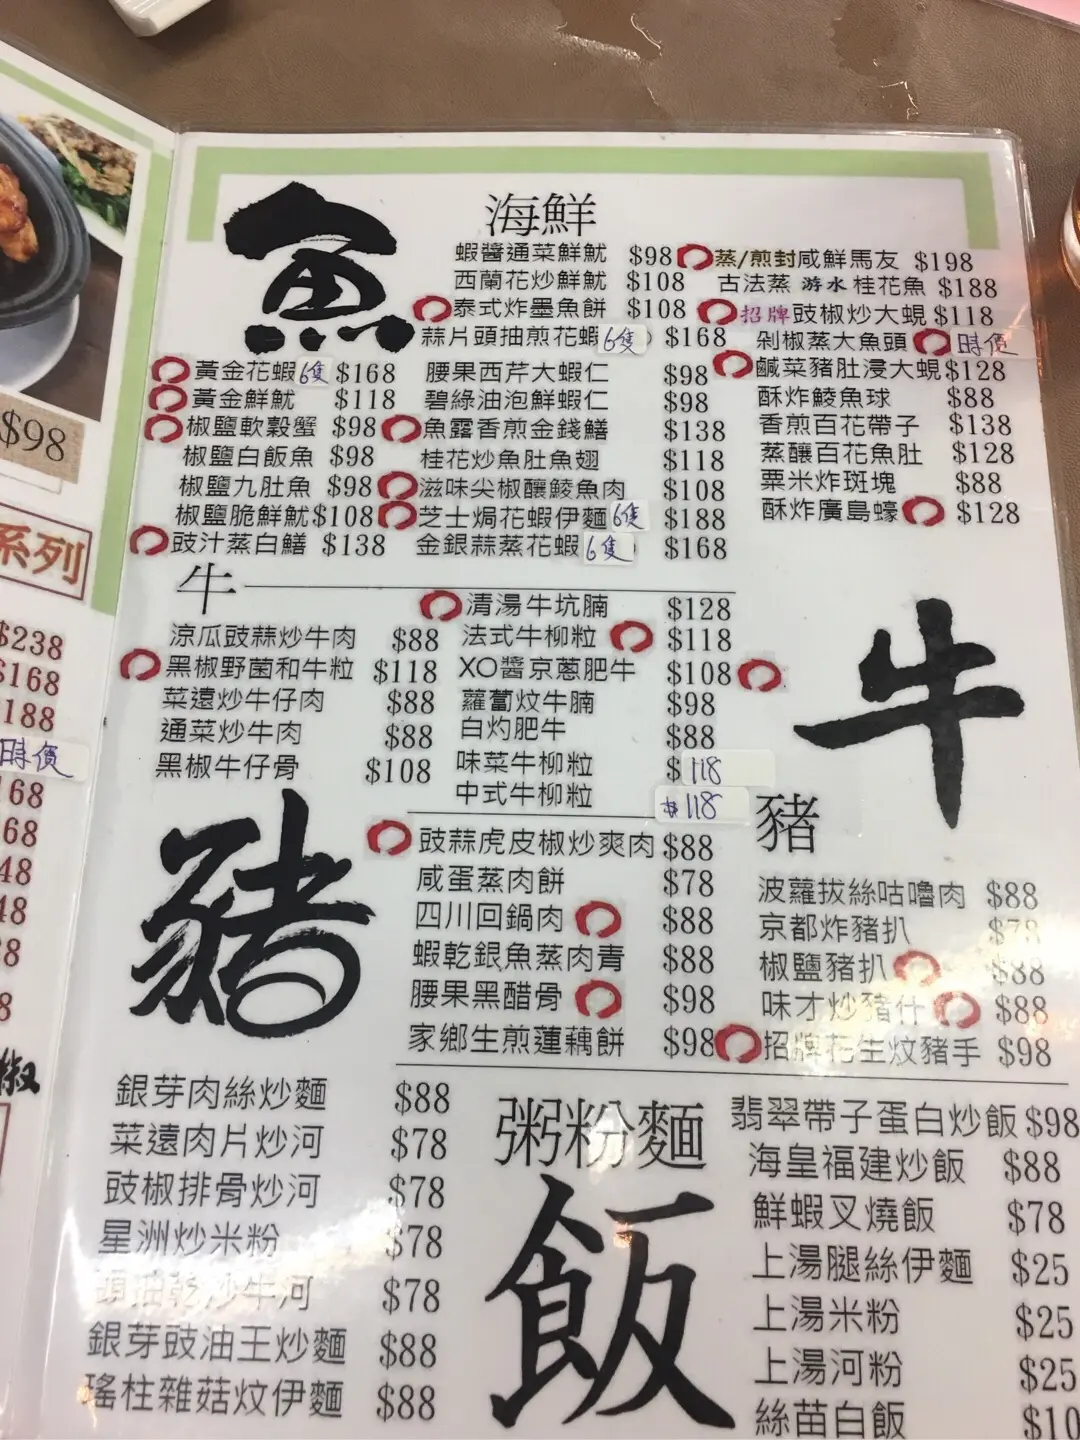 魚
海鮮
蝦醬通菜鮮魷 $98
西蘭花炒鮮魷 $108
泰式炸墨魚餅 $108
蒜片頭抽煎花蝦 6隻 ) $168
黃金花蝦 6隻 $168
黃金鮮魷 $118
椒鹽軟殼蟹 $98
椒鹽白飯魚 $98
椒鹽九肚魚 $98
椒鹽脆鮮魷 $108
豉汁蒸白鱔 $138
腰果西芹大蝦仁 $98
碧綠油泡鮮蝦仁 $98
魚露香煎金錢鱔 $138
桂花炒魚肚魚翅 $118
滋味尖椒釀鯪魚肉 $108
芝士焗花蝦伊麵 6隻 $188
金銀蒜蒸花蝦 6隻 ) $168
蒸/煎封咸鮮馬友 $198
古法蒸 游水 桂花魚 $188
招牌豉椒炒大蜆 $118
剁椒蒸大魚頭 時價
鹹菜豬肚浸大蜆 $128
酥炸鯪魚球 $88
香煎百花帶子 $138
蒸釀百花魚肚 $128
粟米炸斑塊 $88
酥炸廣島蠔 $128
牛
涼瓜豉蒜炒牛肉 $88
黑椒野菌和牛粒 $118
菜遠炒牛仔肉 $88
通菜炒牛肉 $88
黑椒牛仔骨 $108
清湯牛坑腩 $128
法式牛柳粒 $118
XO醬京蔥肥牛 $108
蘿蔔炆牛腩 $98
白灼肥牛 $88
味菜牛柳粒 $118
中式牛柳粒 $118
牛
豬
豬
豉蒜虎皮椒炒爽肉 $88
咸蛋蒸肉餅 $78
四川回鍋肉 $88
蝦乾銀魚蒸肉青 $88
腰果黑醋骨 $98
家鄉生煎蓮藕餅 $98
波蘿拔絲咕嚕肉 $88
京都炸豬扒 $78
椒鹽豬扒 $88
味才炒豬什 $88
招牌花生炆豬手 $98
銀芽肉絲炒麵 $88
菜遠肉片炒河 $78
豉椒排骨炒河 $78
星洲炒米粉 $78
頭抽乾炒牛河 $78
銀芽豉油王炒麵 $88
瑤柱雜菇炆伊麵 $88
粥粉麵
飯
翡翠帶子蛋白炒飯 $98
海皇福建炒飯 $88
鮮蝦叉燒飯 $78
上湯腿絲伊麵 $25
上湯米粉 $25
上湯河粉 $25
絲苗白飯 $10
$98
系列
$238
$168
188
時價
168
68
48
48
8
8
椒